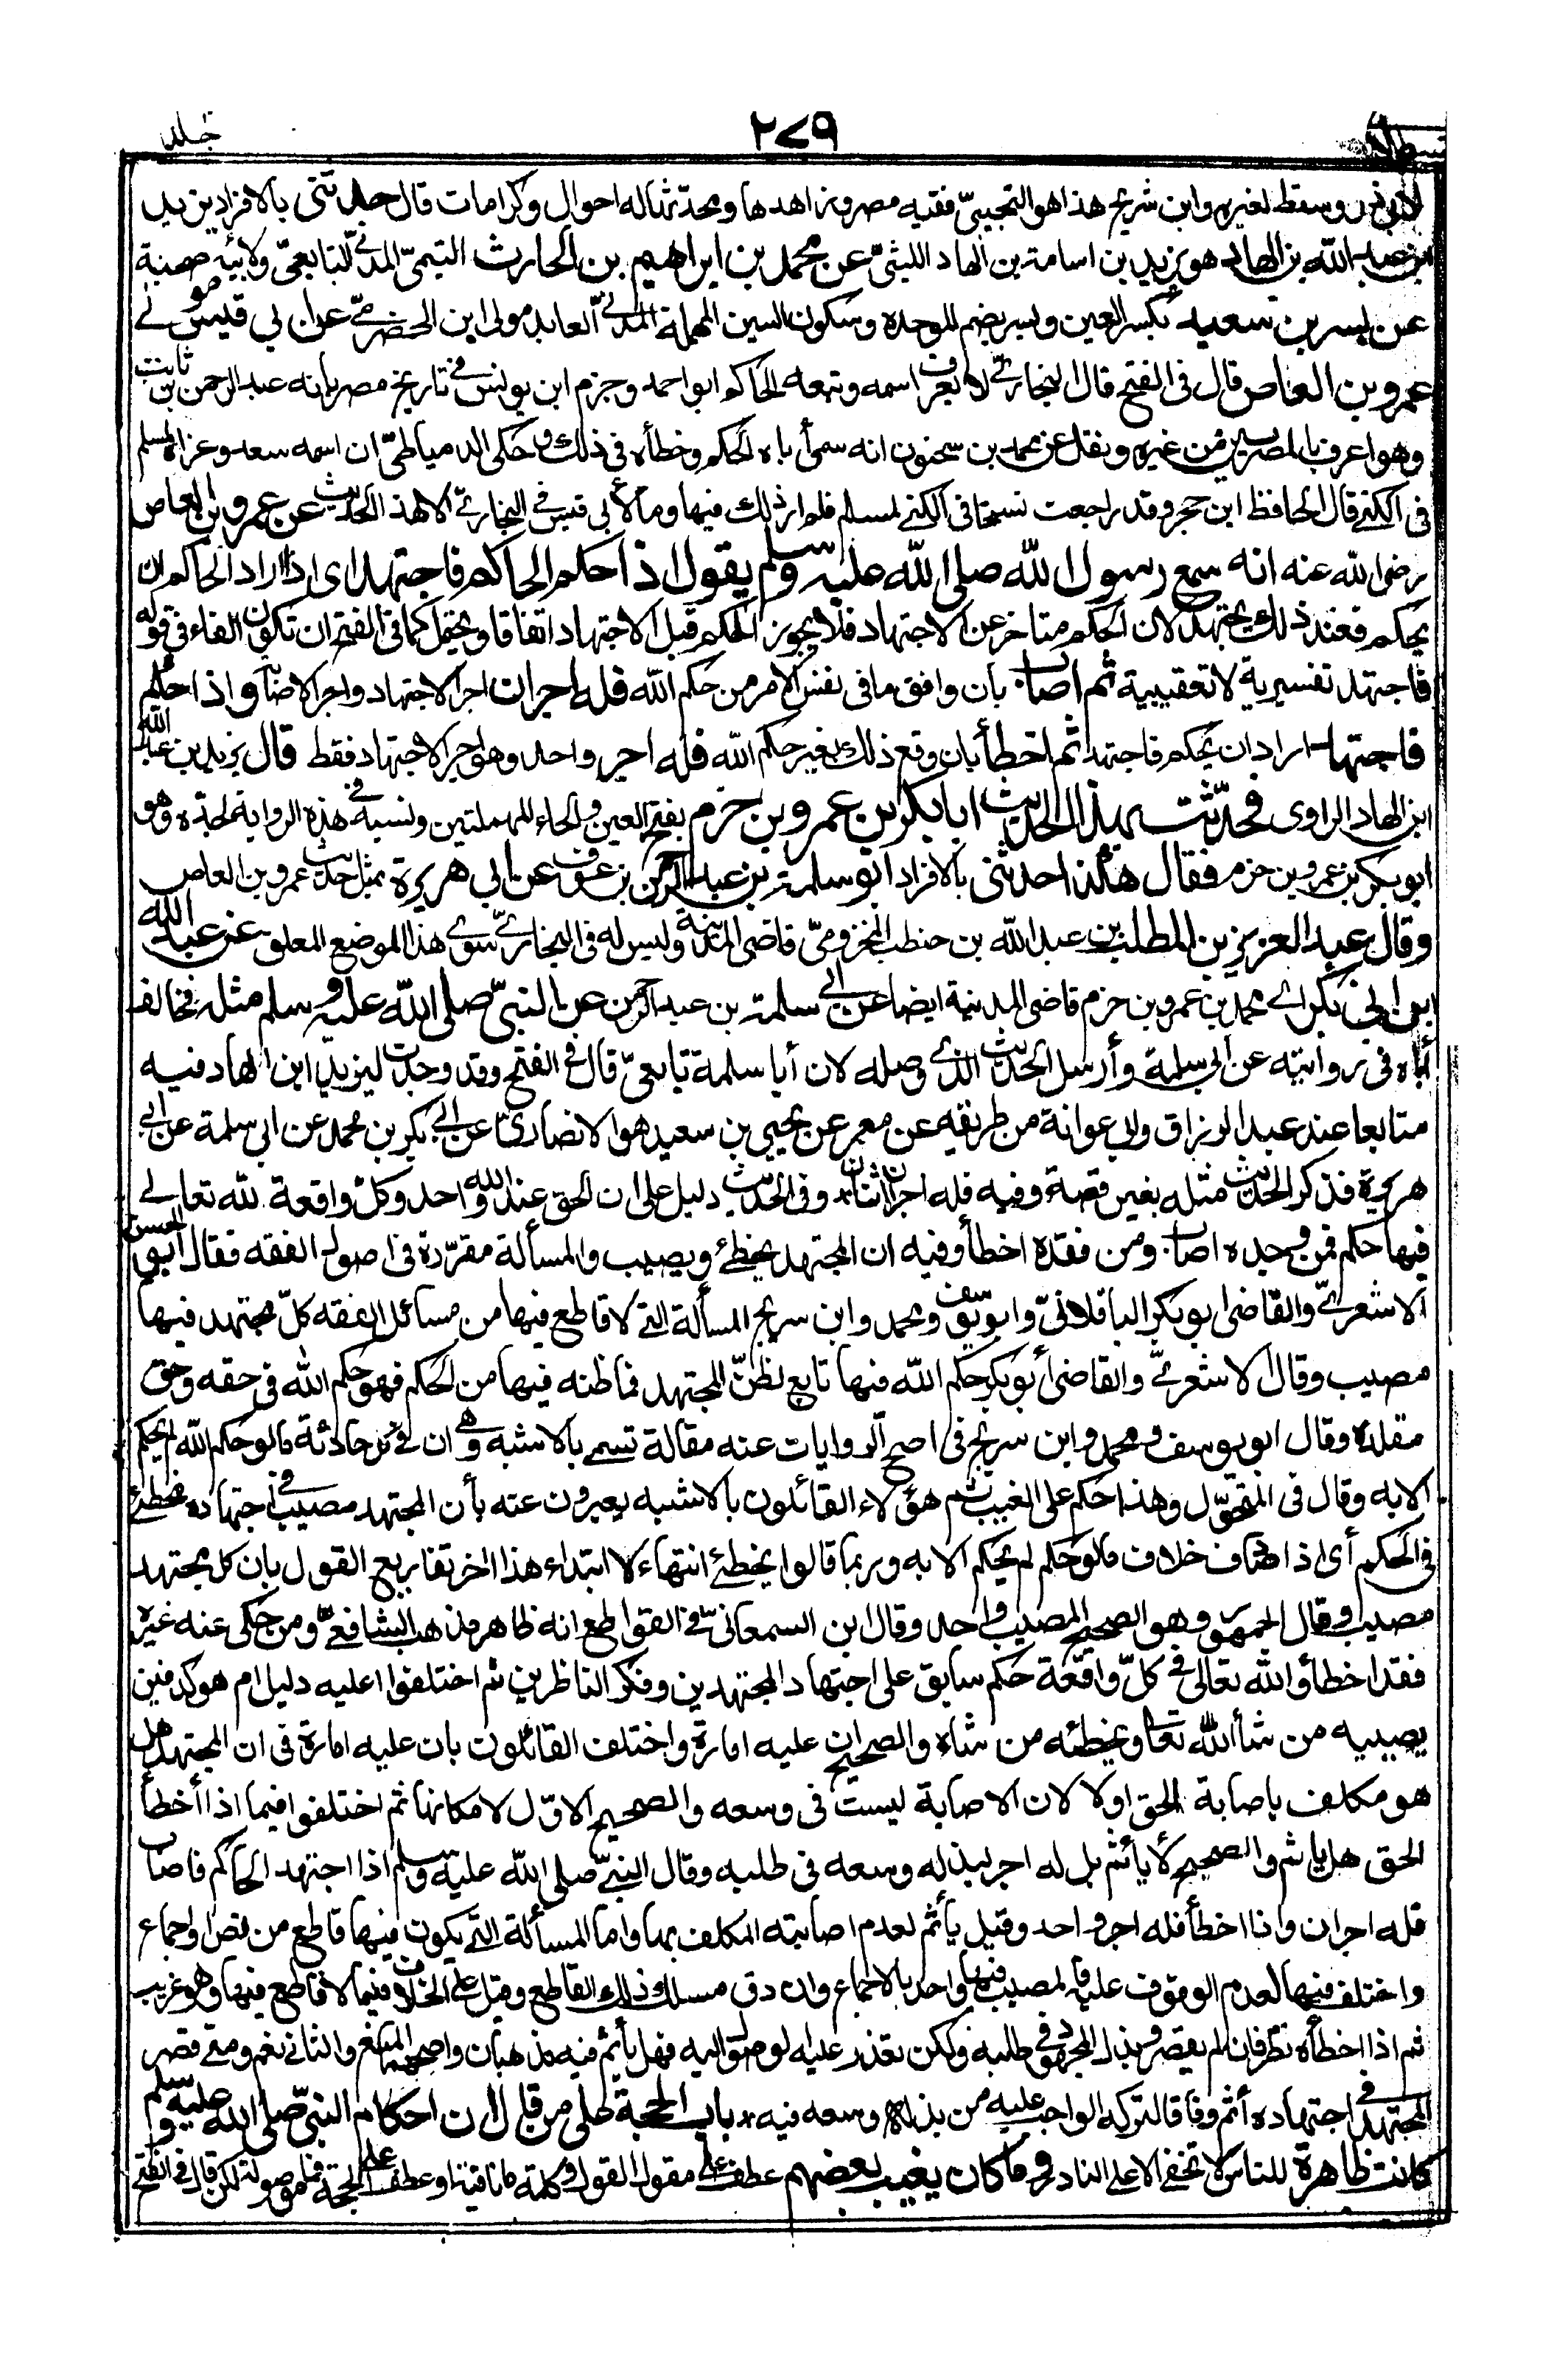 قسطلانی ٢٧٩ جلد
لابی ذر وسقط لغیره وابن شریح هذا هو التجیبیّ فقیه مصر وزاهدها ومحدثها له احوال وکرامات قال حدثنی بالافراد یزید
بن عبد الله بن الهاد هو یزید بن اسامة بن الهاد اللیثیّ عن محمد بن ابراهیم بن الحارث التیمیّ المدنیّ التابعیّ ولابیه صحبة
عن بسر بن سعید بکسر العین وبسر بضم الموحدة وسکون السین المهملة المدنیّ العابد مولی ابن الحضرمیّ عن ابی قیس مولے
عمرو بن العاص قال فی الفتح قال البخاریّ لا یعرف اسمه وتبعه الحاکم ابو احمد وجزم ابن یونس فی تاریخ مصر بانه عبد الرحمن بن ثابت
وهو اعرف بالمصریین من غیره ونقل عن محمد بن سحنون انه سمی أباه الحکم وخطأه فی ذلك وحکی الدمیاطیّ ان اسمه سعد وعزاه لمسلم
فی الکنے قال الحافظ ابن حجر وقد راجعت نسخا فی الکنے لمسلم فلم ار ذلك فیها وما لأبی قیس فی البخاریّ الا هذا الحدیث عن عمرو بن العاص
رضی الله عنه انه سمع رسول الله صلی الله علیه وسلم یقول اذا حکم الحاکم فاجتهد ای اذا اراد الحاکم ان
یحکم فعند ذلك یجتهد لان الحکم متاخر عن الاجتهاد فلا یجوز الحکم قبل الاجتهاد اتفاقا ویحتمل کما فی الفتح ان تکون الفاء فی قوله
فاجتهد تفسیریة لا تعقیبیة ثم اصاب بان وافق ما فی نفس الامر من حکم الله فله اجران اجر الاجتهاد واجر الاصابة واذا حکم
فاجتهد اراد ان یحکم فاجتهد ثم اخطأ بان وقع ذلك بغیر حکم الله فله اجر واحد وهو اجر الاجتهاد فقط قال یزید بن عبد الله
ابن الهاد الراوی فحدّثت بهذا الحدیث ابا بکر بن عمرو بن حزم بفتح العین والحاء المهملتین ونسبه فی هذه الروایة لجدّه وهو
ابو بکر بن عمرو بن حزم فقال هکذا حدثنی بالافراد ابو سلمة بن عبد الرحمن بن عوف عن ابی هریرة بمثل حدیث عمرو بن العاص
وقال عبد العزیز بن المطلب بن عبد الله بن حنطب المخزومیّ قاضی المدینة ولیس له فی البخاریّ سوی هذا الموضع المعلق عن عبد الله
بن ابی بکر ای محمد بن عمرو بن حزم قاضی المدینة ایضا عن ابی سلمة بن عبد الرحمن عن النبیّ صلی الله علیه وسلم مثله فخالف
أباه فی روایته عن أبی سلمة وأرسل الحدیث الذی وصله لان أبا سلمة تابعیّ قال فی الفتح وقد وجدت لیزید ابن الهاد فیه
متابعا عند عبد الرزاق وابی عوانة من طریقه عن معمر عن یحیی بن سعید هو الانصاریّ عن ابی بکر بن محمد عن ابی سلمة عن ابی
هریرة فذکر الحدیث مثله بغیر قصة وفیه فله اجران اثنان وفی الحدیث دلیل علی ان الحق عند الله واحد وکل واقعة لله تعالے
فیها حکم فمن وجده اصاب ومن فقده اخطأ وفیه ان المجتهد یخطئ ویصیب والمسألة مقرّرة فی اصول الفقه فقال ابو الحسن
الاشعریّ والقاضی ابو بکر الباقلانیّ وابو یوسف ومحمد وابن سریج المسألة التی لا قاطع فیها من مسائل الفقه کلّ مجتهد فیها
مصیب وقال الاشعریّ والقاضی أبو بکر حکم الله فیها تابع لظنّ المجتهد فما ظنه فیها من الحکم فهو حکم الله فی حقه وحق
مقلده وقال ابو یوسف ومحمد وابن سریج فی اصح الروایات عنه مقالة تسمی بالاشبه وهی ان فی کل حادثة ما لو حکم الله لم یحکم
الا به وقال فی المنخول وهذا حکم علی الغیب ثم هؤلاء القائلون بالاشبه یعبرون عنه بأن المجتهد مصیب فی اجتهاده مخطئ
فی الحکم أی اذا صادف خلاف ما لو حکم لم یحکم الا به وربما قالوا یخطئ انتهاء لا ابتداء هذا اخر تفاریع القول بان کل مجتهد
مصیب وقال الجمهور وهو الصحیح المصیب واحد وقال ابن السمعانیّ فی القواطع انه ظاهر مذهب الشافعیّ ومن حکی عنه غیره
فقد اخطأ ولله تعالی فی کلّ واقعة حکم سابق علی اجتهاد المجتهدین وفکر الناظرین ثم اختلفوا اعلیه دلیل ام هو کدفین
یصیبه من شاء الله تعالی ویخطئه من شاءه والصحیح ان علیه امارة واختلف القائلون بان علیه امارة فی ان المجتهد هل
هو مکلف باصابة الحق اولا لان الاصابة لیست فی وسعه والصحیح الاوّل لامکانها ثم اختلفوا فیما اذا أخطأ
الحق هل یاثم والصحیح لا یأثم بل له اجر لبذله وسعه فی طلبه وقال النبیّ صلی الله علیه وسلم اذا اجتهد الحاکم فاصاب
فله اجران واذا اخطأ فله اجر واحد وقیل یأثم لعدم اصابته المکلف بها واما المسألة التی یکون فیها قاطع من نص او اجماع
واختلف فیها لعدم الوقوف علیه فالمصیب فیها واحد بالاجماع وان دق مسلك ذلك القاطع وقیل علی الخلاف فیما لا قاطع فیها وهو غریب
ثم اذا اخطأه نظر فان لم یقصر وبذل المجهود فی طلبه ولکن تعذر علیه الوصول الیه فهل یأثم فیه مذهبان واصحهما المنع والثانی نعم ومتی قصر
المجتهد فی اجتهاده أثم وفاقا لترکه الواجب علیه من بذله وسعه فیه * باب الحجة علی من قال ان احکام النبیّ صلی الله علیه وسلم
کانت ظاهرة للناس لا تخفی الا علی النادر وما کان یغیب بعضهم عطف علی مقول القول وکلمة ما نافیة او عطف علی الحجة فما موصولة لکن قال فی الفتح